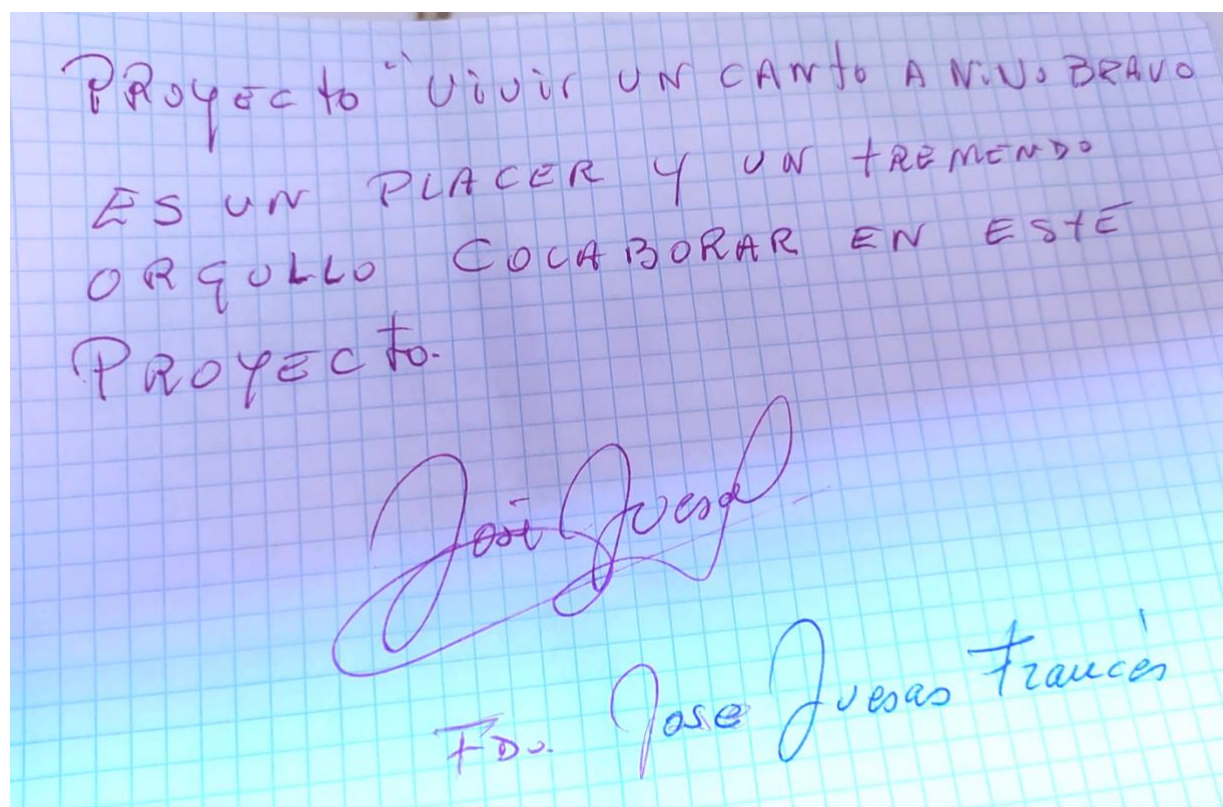 PROyECto "ViViR UN CANto A NiNo BRAVO
ES UN PLACER Y UN tREMENDO
ORGULLO COLABORAR EN EStE
PROYECto.
José Juesas
FDo. Jose Juesas Francés